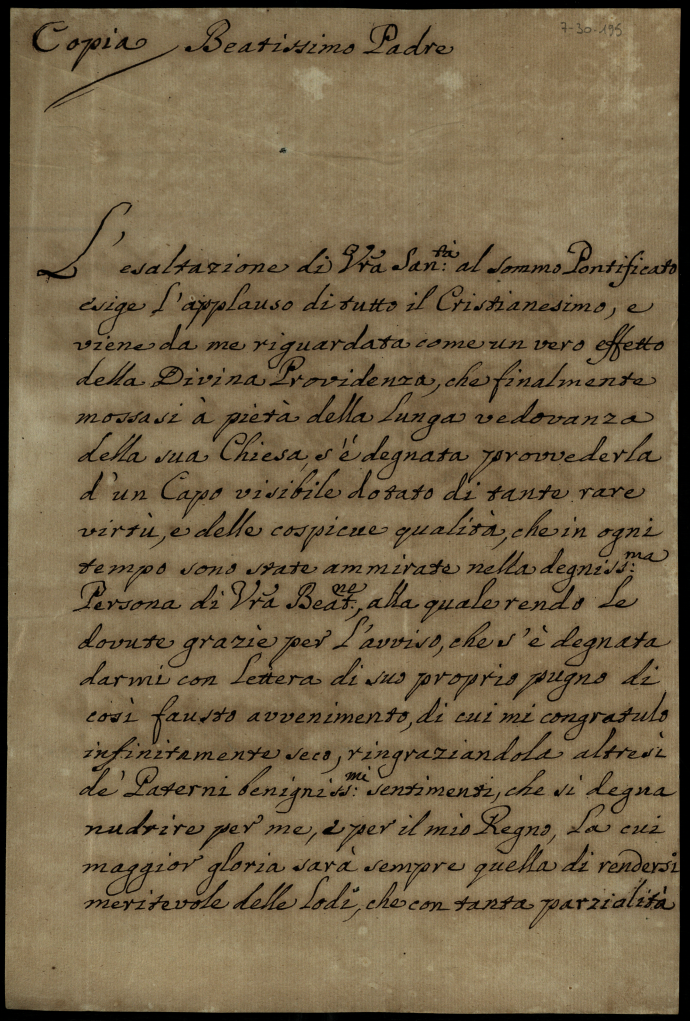 7-30-195
Copia Beatissimo Padre
L'esaltazione di Vrã San:tà al sommo Pontificato
esige l'applauso di tutto il Cristianesimo, e
viene da me riguardata come un vero effetto
della Divina Providenza, che finalmente
mossasi à pietà della lunga vedovanza
della sua Chiesa, s'é degnata provvederla
d'un Capo visibile dotato di tante rare
virtù, e delle cospicue qualità, che in ogni
tempo sono state ammirate nella degniss:ma
Persona di Vrã Beat:ne, alla quale rendo le
dovute grazie per l'avviso, che s'è degnata
darmi con lettera di suo proprio pugno di
così fausto avvenimento, di cui mi congratulo
infinitamente seco, ringraziandola altresì
de' Paterni benigniss:mi sentimenti, che si degna
nudrire per me, e per il mio Regno, la cui
maggior gloria sarà sempre quella di rendersi
meritevole delle lodi, che con tanta parzialità